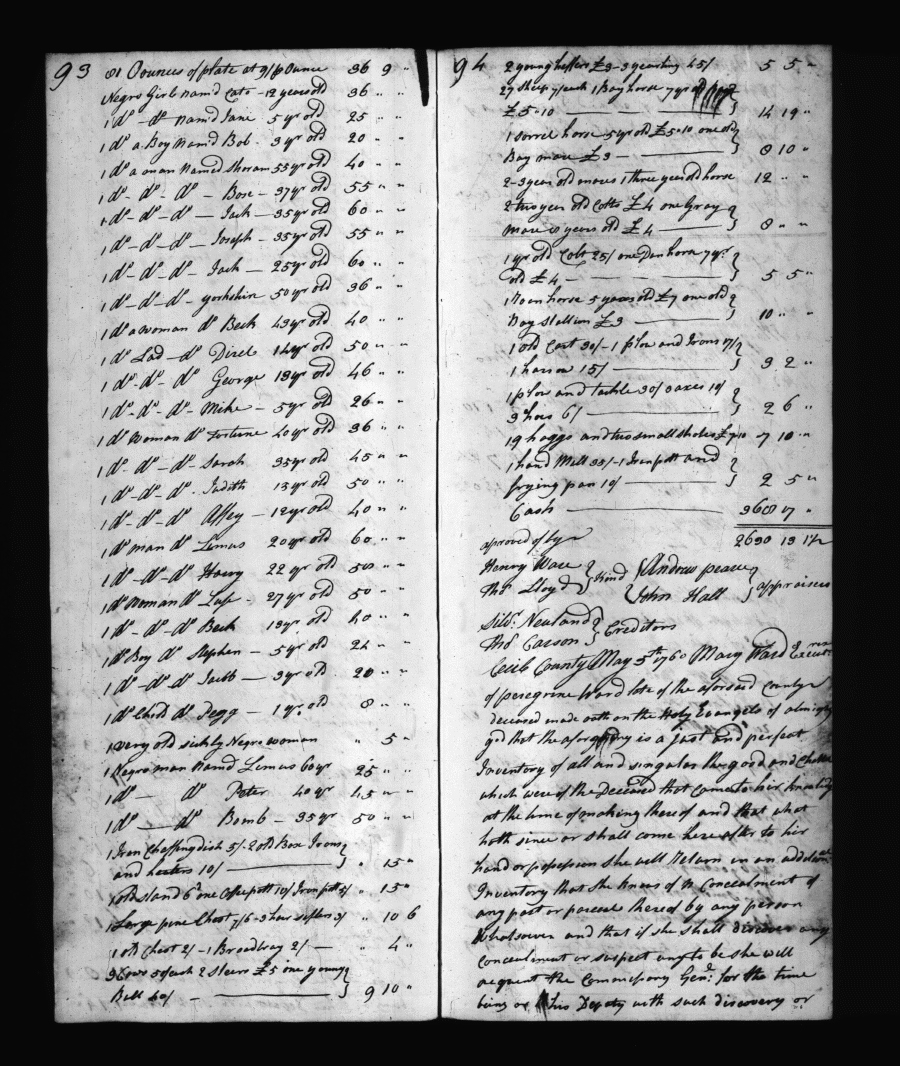 93
81 Ounces of plate at 9/ p Ounce 36 9 "
Negro Girls Namd Cate - 12 years old 36 " "
1 do - do Namd Jane 5 yr old 25 " "
1 do a Boy Namd Bob - 3 yr old 20 " "
1 do a man Named 55 yr old 40 " "
1 do - do - do - 37 yr old 55 " "
1 do - do - do - Jack - 35 yr old 60 " "
1 do - do - do - Joseph - 35 yr old 55 " "
1 do - do - do - Jack - 25 yr old 60 " "
1 do - do - do - yorkshire 50 yr old 36 " "
1 do a woman do Beck 43 yr old 40 " "
1 do Lad - do 14 yr old 50 " "
1 do - do - do George 13 yr old 46 " "
1 do - do - do - Mike - 5 yr old 26 " "
1 do Woman do Fortune 40 yr old 36 " "
1 do - do - do - Sarah 35 yr old 45 " "
1 do - do - do - Judith 15 yr old 50 " "
1 do - do - do Affey - 12 yr old 40 " "
1 do man do Limus 20 yr old 60 " "
1 do - do - do Harry 22 yr old " "
1 do Woman do 27 yr old 50 " "
1 do - do - do - Beck 13 yr old 40 " "
1 do Boy do Stephen - 5 yr old 24 " "
1 do - do - do Jacob - 3 yr old 20 " "
1 do Child do Pegg - 1 yr old 8 " "
1 very old sickly Negro woman " 5 "
1 Negro man Namd Limus 60 yr 25 " "
1 do - do Peter 40 yr 45 " "
1 do - do Bomb - 35 yr 50 " "
1 Iron Chaffingdish 5/- 2 old Box Irons
and heaters 10/ " 15 "
one Coffepott 10/ Iron pott 5/ " 15 "
1 Large pine Chest 7/6 - 3 hair sifters 3/ " 10 6
1 old Chest 2/ - 1 Broad 2/ - " 4 "
3 Cows 50/ each 2 Steers £5 one young
Bull 40/ - 9 10 "
94
2 young heffers £3 - 3 yearling 45/ 5 5 "
27 sheep 7/ each 1 Bay horse 7 yr old
£5-10 14 19 "
1 Sorrel horse 5 yr old £5-10 one old
Bay mare £3 - 8 10 "
2-3 year old mares 1 three year old horse 12 " "
2 two year old Colts £4 one Gray
mare 8 years old £4 8 " "
1 yr old Colt 25/ one Dun horse 7 yr
old £4 - 5 5 "
1 Roan horse 5 years old £7 one old
Bay Stallion £3 10 " "
1 old Cart 30/ - 1 plow and Irons 17/
1 harrow 15/ 3 2 "
1 plow and tackle 30/ 3 axes 10/
3 hoes 6/ 2 6 "
19 hoggs and two small shotes 7 10 "
1 hand Mill 35/ - 1 Iron pott and
frying pan 10/ 2 5 "
Cash 17 "
2690 13 1½
aproved of by
Henry Ware } kind { Andrew pearce } appraisers
Tho Lloyd John Hall
Silvr Newland } Creditors
Tho Carson
Cecil County May 5th 1760 Mary Ward Executrx
of peregrine Ward late of the aforsaid County
deceased made oath on the Holy Evangels of almighty
god that the aforgoing is a Just and perfect
Inventory of all and singular the good and Chattles
which were of the Deceased that came to her knowledge
at the time of making thereof and that what
hath since or shall come hereafter to her
hand or possession she will Return in an additional
Inventory that she knows of no Concealment of
any part or parcel thereof by any person
Whatsoever and that if she shall discover any
concealment or suspect any to be she will
acquent the Commissary Genl for the time
being or his Deputy with such discovery or